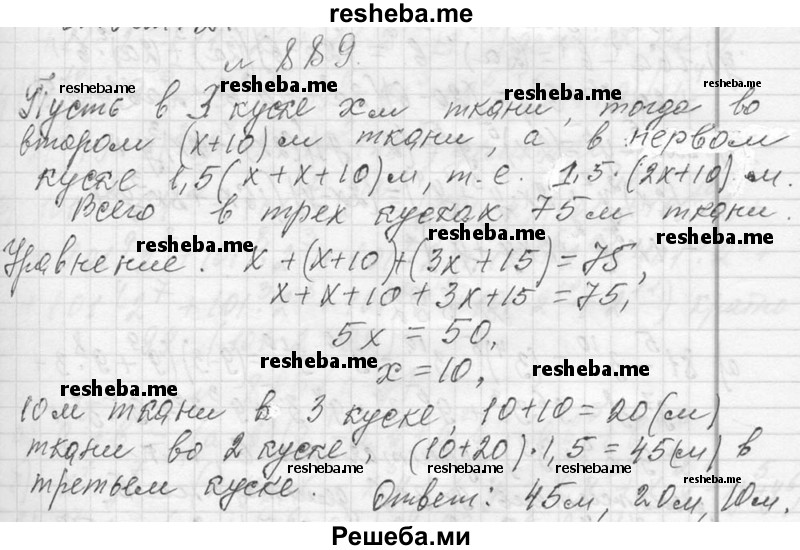 resheba.me
№ 889.
resheba.me resheba.me resheba.me resheba.me
Пусть в 3 куске x м ткани, тогда во
втором (x+10) м ткани, а в первом
куске 1,5(x+x+10) м, т.е. 1,5·(2x+10) м.
Всего в трех кусках 75 м ткани.
resheba.me resheba.me resheba.me
Уравнение: x+(x+10)+(3x+15)=75,
x+x+10+3x+15=75,
5x=50,
resheba.me resheba.me
x=10,
resheba.me
10 м ткани в 3 куске, 10+10=20(м)
ткани во 2 куске, (10+20)·1,5=45(м) в
resheba.me resheba.me resheba.me
третьем куске. Ответ: 45м, 20м, 10м.
Решеба.ми